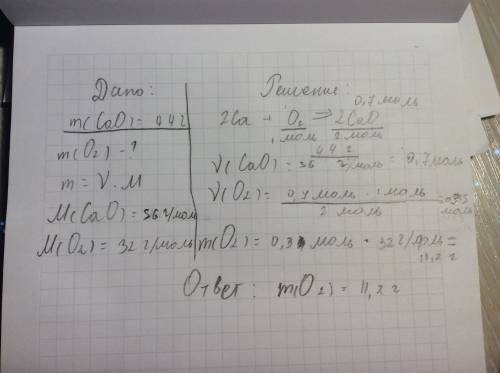 Дано:
m(CaO) = 44 г
m(O₂) - ?
m = ν · M
M(CaO) = 56 г/моль
M(O₂) = 32 г/моль
Решение:
0,7 моль
2Ca + O₂ = 2CaO
1 моль 2 моль
44 г
ν(CaO) = 56 г/моль = 0,7 моль
ν(O₂) = 0,7 моль · 1 моль = 0,35 моль
2 моль
m(O₂) = 0,3 моль · 32 г/моль =
11,2 г
Ответ: m(O₂) = 11,2 г